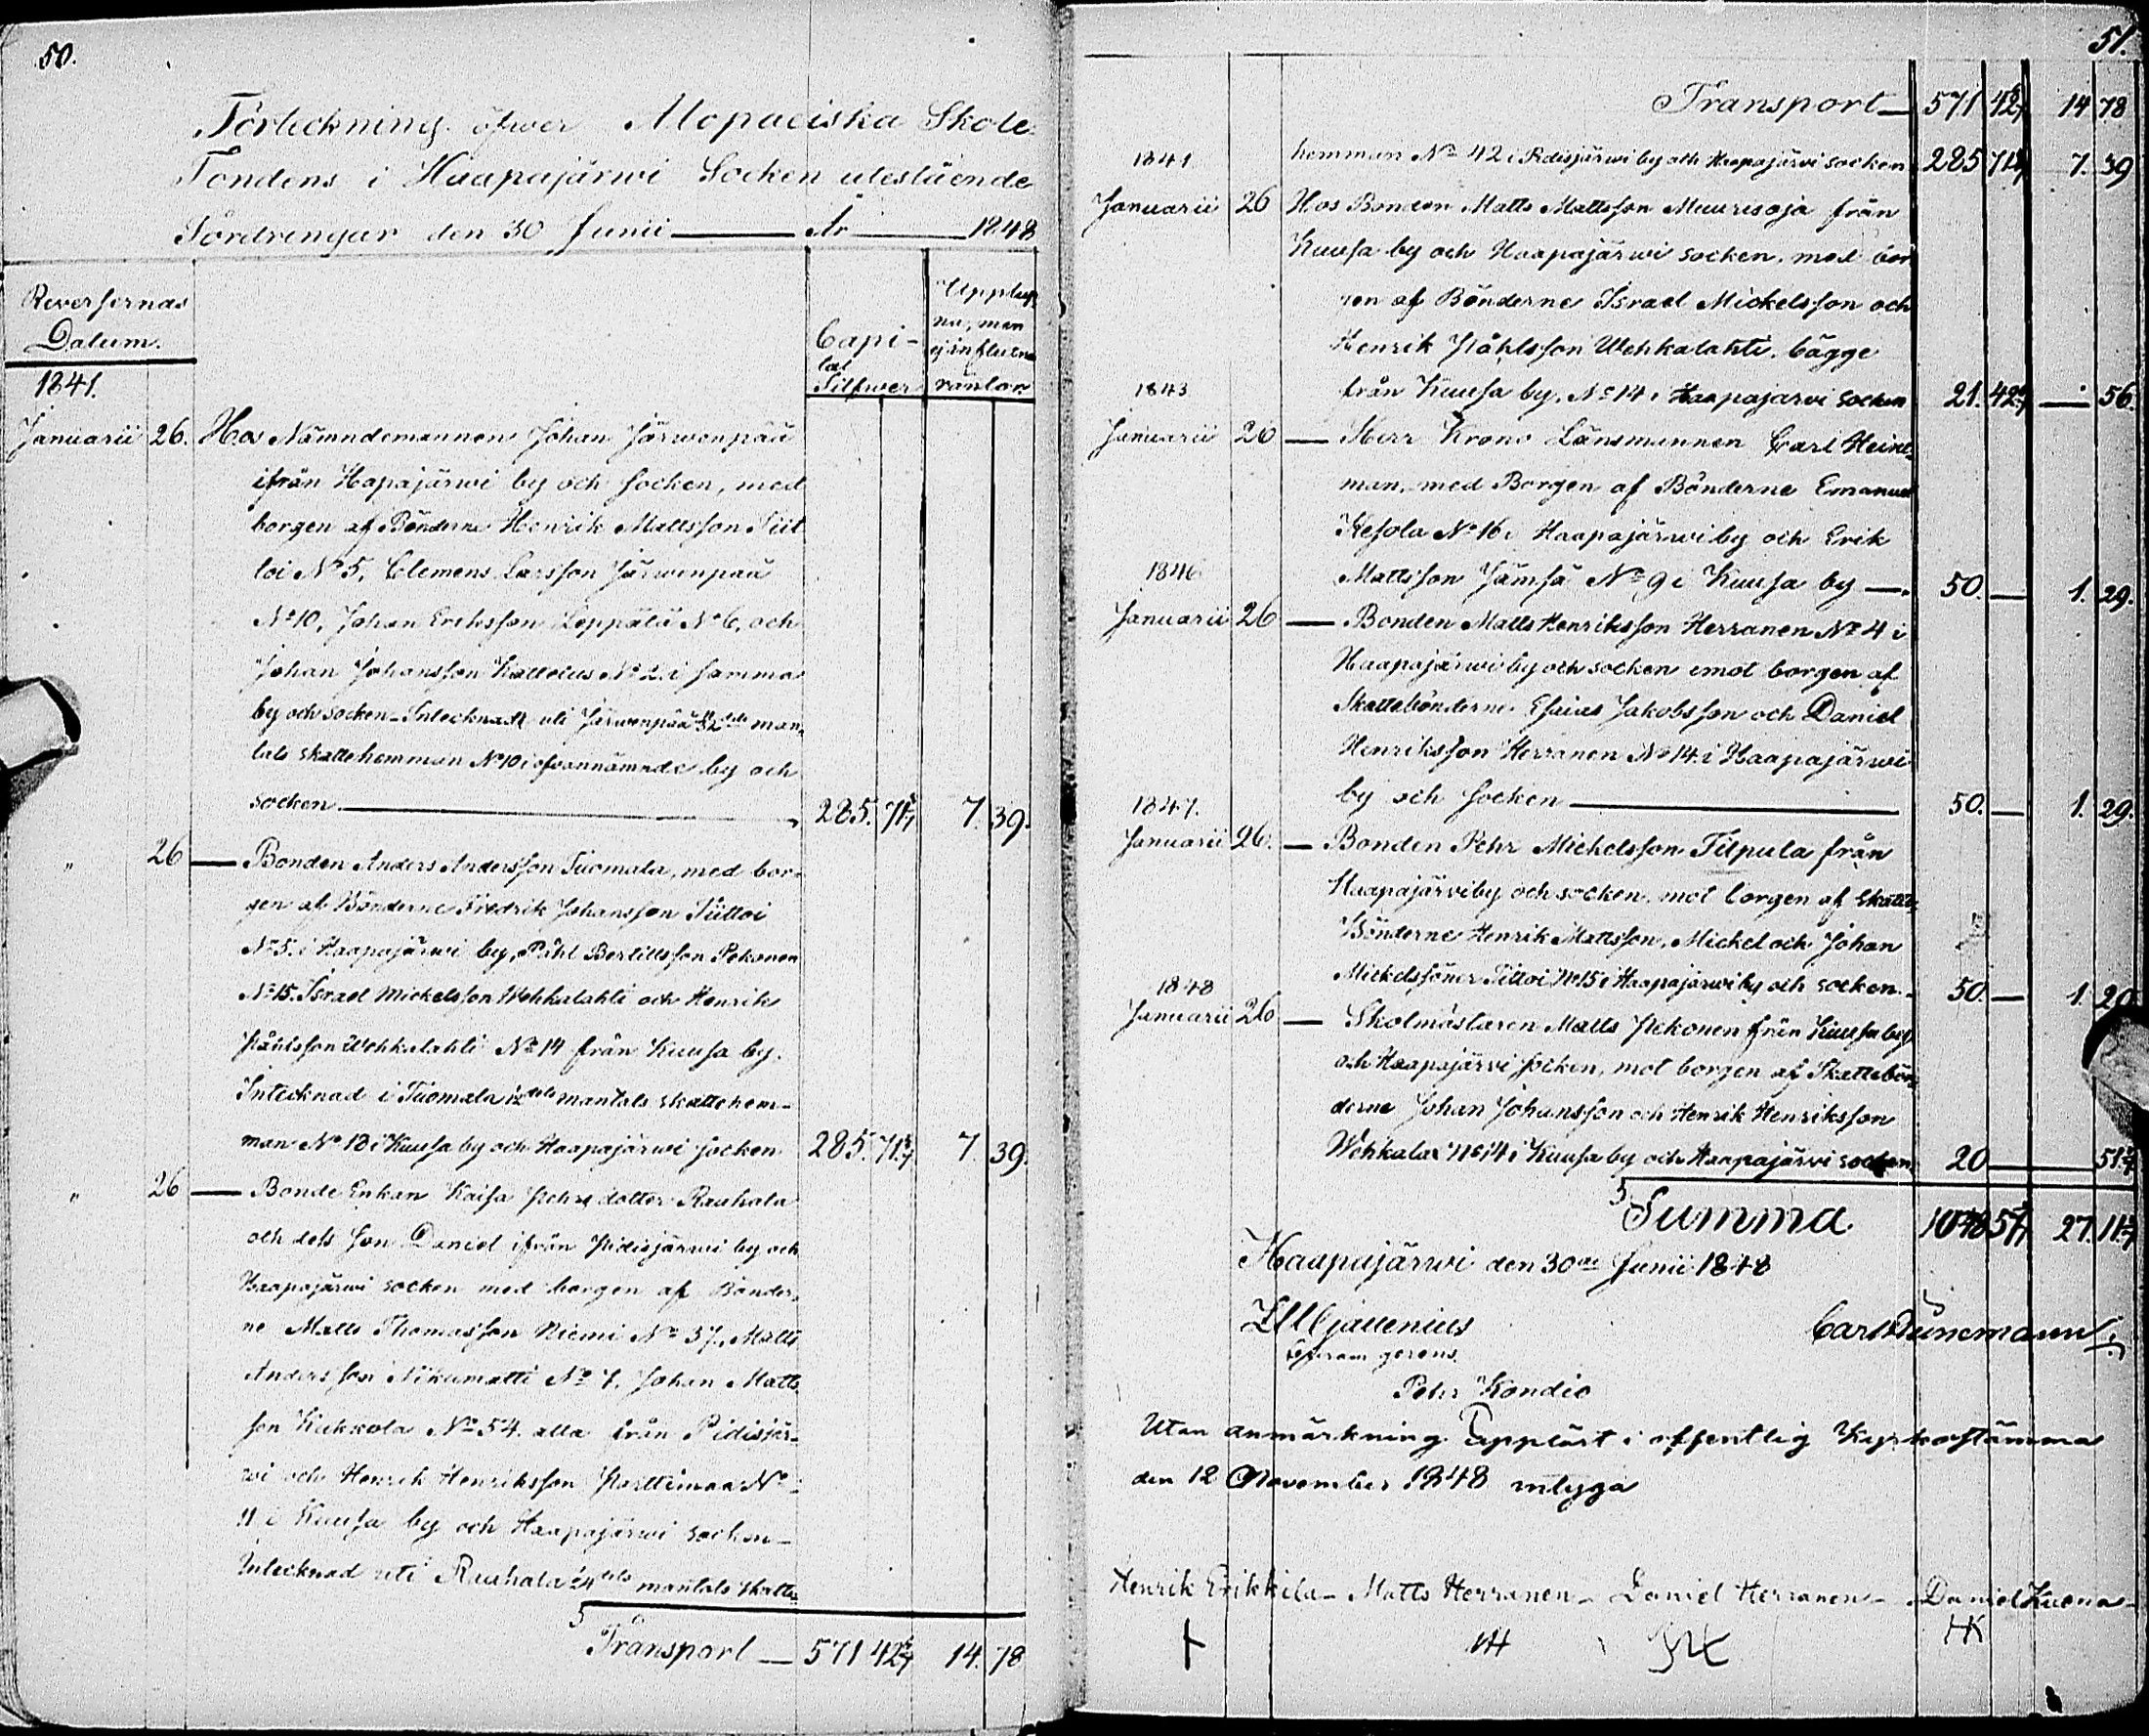 50.
Förteckning öfwer Mopaeiska Skole-
Fondens i Haapajärwi Socken utestående
Fordringar den 30 Junii — År — 1848
Reversernas
Datum.
Capi-
tal
Silfwer
Upplup-
na, men
ej influtna
räntor.
1841.
Januarii 26. Hos Nämndemannen Johan Järwenpää
ifrån Hapajärwi by och socken, med
borgen af Bönderne Henrik Mattsson Tiit
toi No 5, Clemens Larsson Järwenpää
No 10, Johan Eriksson Leppälä No 6, och
Johan Johansson Kattelus No 2 i samma
by och socken - Intecknadt uti Järwenpää man-
tals skattehemman No 10 i ofvannämnde by och
socken — 285. 71 3/7 7. 39.
" 26 — Bonden Anders Andersson Tuomala, med bor-
gen af Bönderne Fredrik Johansson Tiittoi
No 5. i Haapajärwi by, Påhl Bertillsson Pekonen
No 15. Israel Mickelsson Wehkalahti och Henrik
Påhlsson Wehkalahti No 14 från Kuusa by.
Intecknad i Tuomala 1/12 dels mantals skattehem-
man No 12 i Kuusa by och Haapajärwi socken 285. 71 3/7 7. 39.
" 26 — Bonde Enkan Kaisa Pehrsdotter Rauhala
och dess son Daniel ifrån Pidisjärwi by och
Haapajärwi socken med borgen af Bönder-
ne Matts Thomasson Niemi No 37., Matts
Andersson Nikumatti No 7. Johan Matts
son Kukkola No 54. alla från Pidisjär-
wi och Henrik Henriksson Parttimaa No
11 i Kuusa by och Haapajärwi socken -
Intecknad uti Rauhala 1/24 dels mantals skatte-
Transport — 571 42 6/7 14. 78
51.
Transport — 571 42 6/7 14 78
hemman No 42 i Pidisjärwi by och Haapajärvi socken 285 71 3/7 7. 39
1841
Januarii 26 Hos Bonden Matts Mattsson Muurisoja från
Kuusa by och Haapajärwi socken, med bor-
gen af Bönderne Israel Mickelsson och
Henrik Påhlsson Wehkalahti, bägge
från Kuusa by, No 14 i Haapajärvi socken 21. 42 6/7 — 56.
1843
Januarii 26 — Herr Krono Länsmannen Carl Heine-
man, med Borgen af Bönderne Emanuel
Kesola No 16 i Haapajärwi by och Erik
Mattsson Jämsä No 9 i Kuusa by — 50. — 1. 29.
1846
Januarii 26 — Bonden Matts Henriksson Herranen No 4 i
Haapajärwi by och socken emot borgen af
Skattebönderne Esaias Jakobsson och Daniel
Henriksson Herranen No 14. i Haapajärwi
by och socken — 50. — 1. 29.
1847.
Januarii 26. — Bonden Pehr Michelsson Tilpula från
Haapajärvi by och socken, mot borgen af Skatte-
Bönderne Henrik Mattsson, Mickel och Johan
Mickelssöner Tittoi No 15 i Haapajärwi by och socken. 50. — 1. 29
1848
Januarii 26 — Skolmästaren Matts Pekonen från Kuusa by
och Haapajärvi socken, mot borgen af Skattebön-
derne Johan Johansson och Henrik Henriksson
Wehkala No 14 i Kuusa by och Haapajärvi socken 20 — 51 3/7
Summa 1048 57 1/7 27. 11 3/7
Haapajärwi den 30de Junii 1848
Carl Dünemann
gerens.
Pehr Kondio
Utan anmärkning uppläst i offentlig Kyrkostämma
den 12 November 1848 intyga
Henrik Erikkila - Matts Herranen - Daniel Herranen - Daniel Kuona -